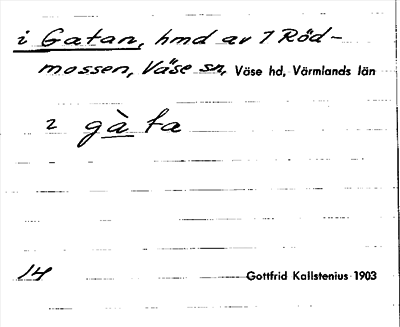 i Gatan, hmd av 1 Röd-
mossen, Väse sn, Väse hd, Värmlands län
2 gàta
14 Gottfrid Kallstenius 1903